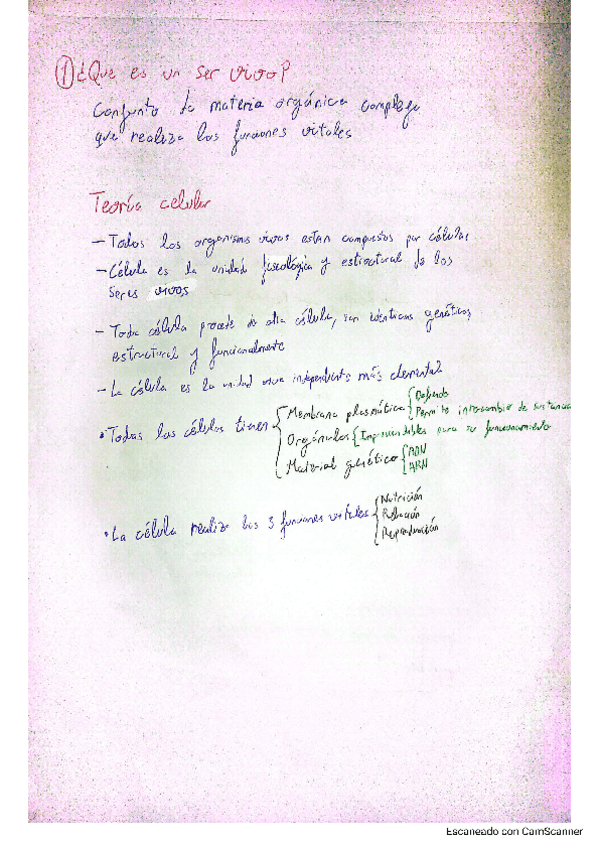 ① ¿Que es un ser vivo?
Conjunto de materia orgánica compleja
que realiza las funciones vitales
Teoría celular
- Todos los organismos vivos estan compuestos por células
- Célula es la unidad fisiológica y estructural de los
seres vivos
- Toda célula procede de otra célula, son idénticas genética,
estructural y funcionalmente
- La célula es la unidad viva independiente más elemental
• Todas las células tienen { Membrana plasmática { Defiende
Permite intercambio de sustancias
Orgánulos { Imprescindibles para su funcionamiento
Material genético { ADN
ARN
• La célula realiza las 3 funciones vitales { Nutrición
Relación
Reproducción
Escaneado con CamScanner